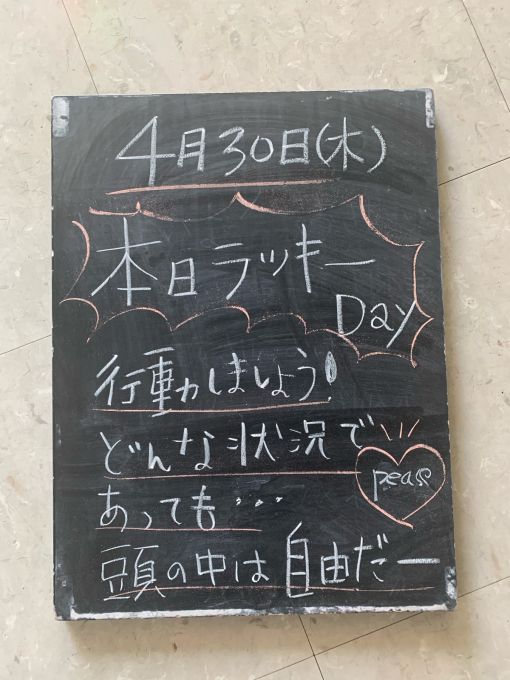 4月30日(木)
本日ラッキー
Day
行動しましょう!
どんな状況で
あっても…
peace
頭の中は自由だー